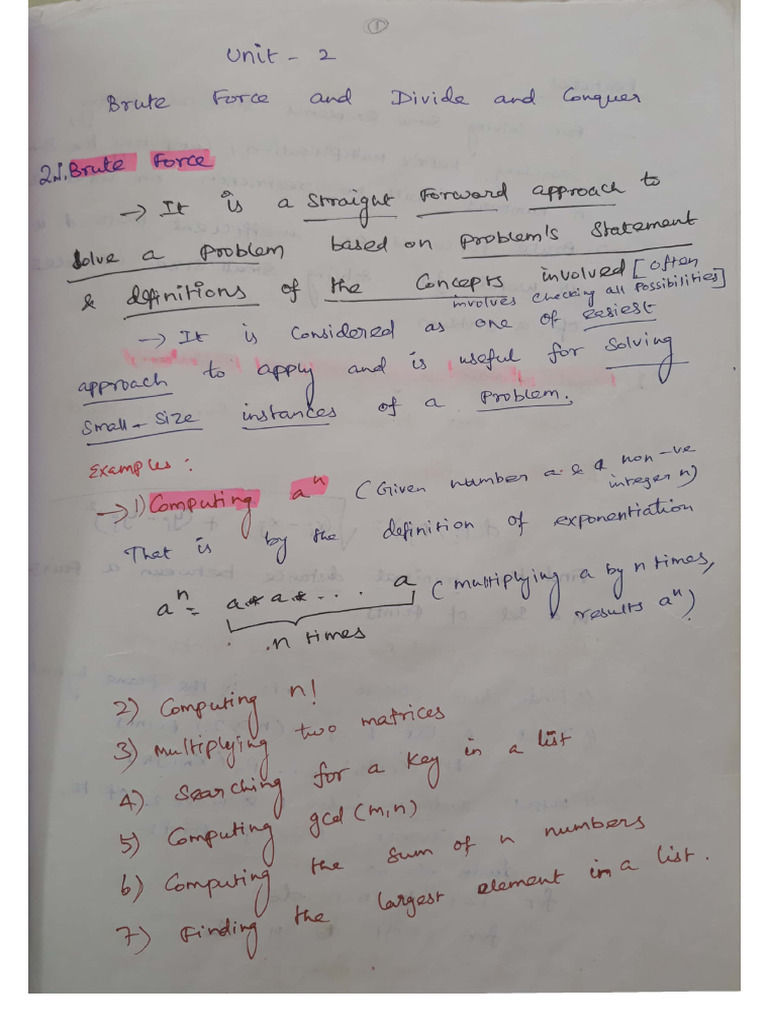 ①
Unit - 2
Brute Force and Divide and Conquer
2.1. Brute Force
→ It is a straight forward approach to
solve a problem based on problem's statement
& definitions of the concepts involved [often
involves checking all possibilities]
→ It is considered as one of easiest
approach to apply and is useful for solving
small-size instances of a problem.
Examples:
→ 1) Computing aⁿ (Given number a & a non-ve
integer n)
That is by the definition of exponentiation
aⁿ = a * a * . . . a (multiplying a by n times,
n times results aⁿ)
2) Computing n!
3) Multiplying two matrices
4) Searching for a key in a list
5) Computing gcd(m,n)
6) Computing the sum of n numbers
7) Finding the largest element in a list.